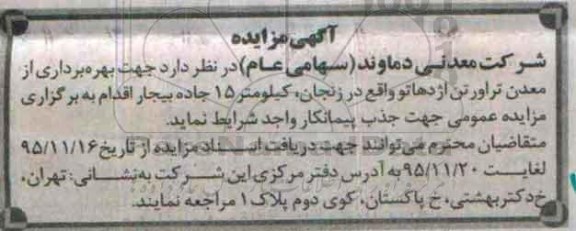 آگهی مزایده
شرکت معدنی دماوند (سهامی عام) در نظر دارد جهت بهره‌برداری از
معدن تراورتن اژدهاتو واقع در زنجان، کیلومتر ۱۵ جاده بیجار اقدام به برگزاری
مزایده عمومی جهت جذب پیمانکار واجد شرایط نماید.
متقاضیان محترم می‌توانند جهت دریافت اسناد مزایده از تاریخ ۹۵/۱۱/۱۶
لغایت ۹۵/۱۱/۲۰ به آدرس دفتر مرکزی این شرکت به نشانی: تهران،
خ دکتر بهشتی، خ پاکستان، کوی دوم پلاک ۱ مراجعه نمایند.